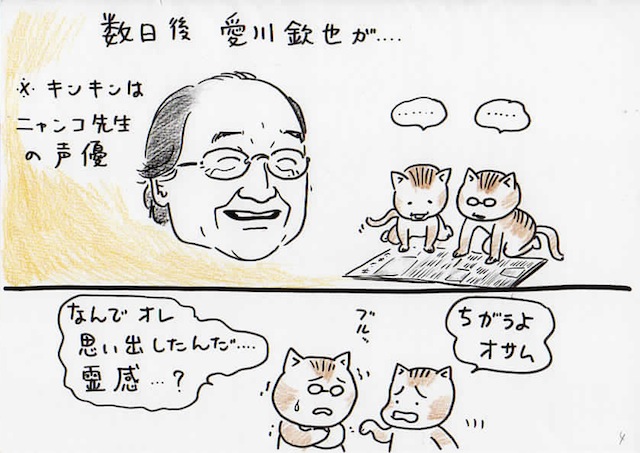 数日後 愛川欽也が‥‥
※キンキンは
ニャンコ先生
の声優
‥‥‥
‥‥‥
なんで オレ
思い出したんだ‥‥
霊感 ‥‥?
ブルッ
ちがうよ
オサム
4